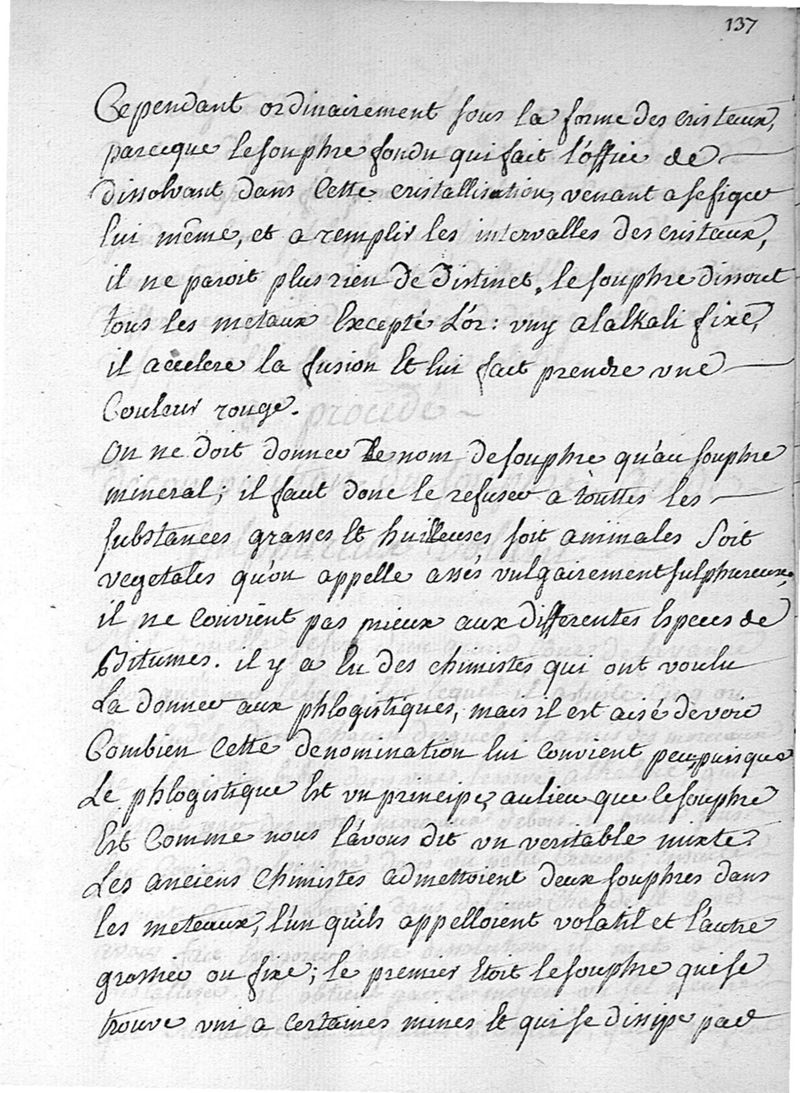 137
Cependant ordinairement sous la forme des cristeaux,
parceque le souphre fondu qui fait l'office de
dissolvant dans Cette cristallisation, venant a se figer
lui même, et a remplir les intervalles des cristaux,
il ne paroit plus rien de distinct. le souphre dissout
tous les metaux Excepté L'or: uny a lalkali fixe,
il accelere la fusion Et lui fait prendre une
Couleur rouge.
On ne doit donner Le nom de souphre qu'au souphre
mineral; il faut donc le refuser a touttes les
substances grasses Et huilleuses soit animales Soit
vegetales qu'on appelle assés vulgairement sulphureux.
il ne Convient pas mieux aux differentes Especes de
Bitumes. il y a Eu des chimistes qui ont voulu
La donner aux phlogistiques, mais il est aisé de voir
Combien Cette denomination lui Convient peu, puisque
Le phlogistique Est un principe, au lieu que le souphre
Est Comme nous l'avons dit un veritable mixte.
Les anciens Chimistes admettoient deux souphres dans
les meteaux, l'un qu'ils appelloient volatil et l'autre
grossier ou fixe; le premier Etoit le souphre qui se
trouve uni a Certaines mines Et qui se dissipe par